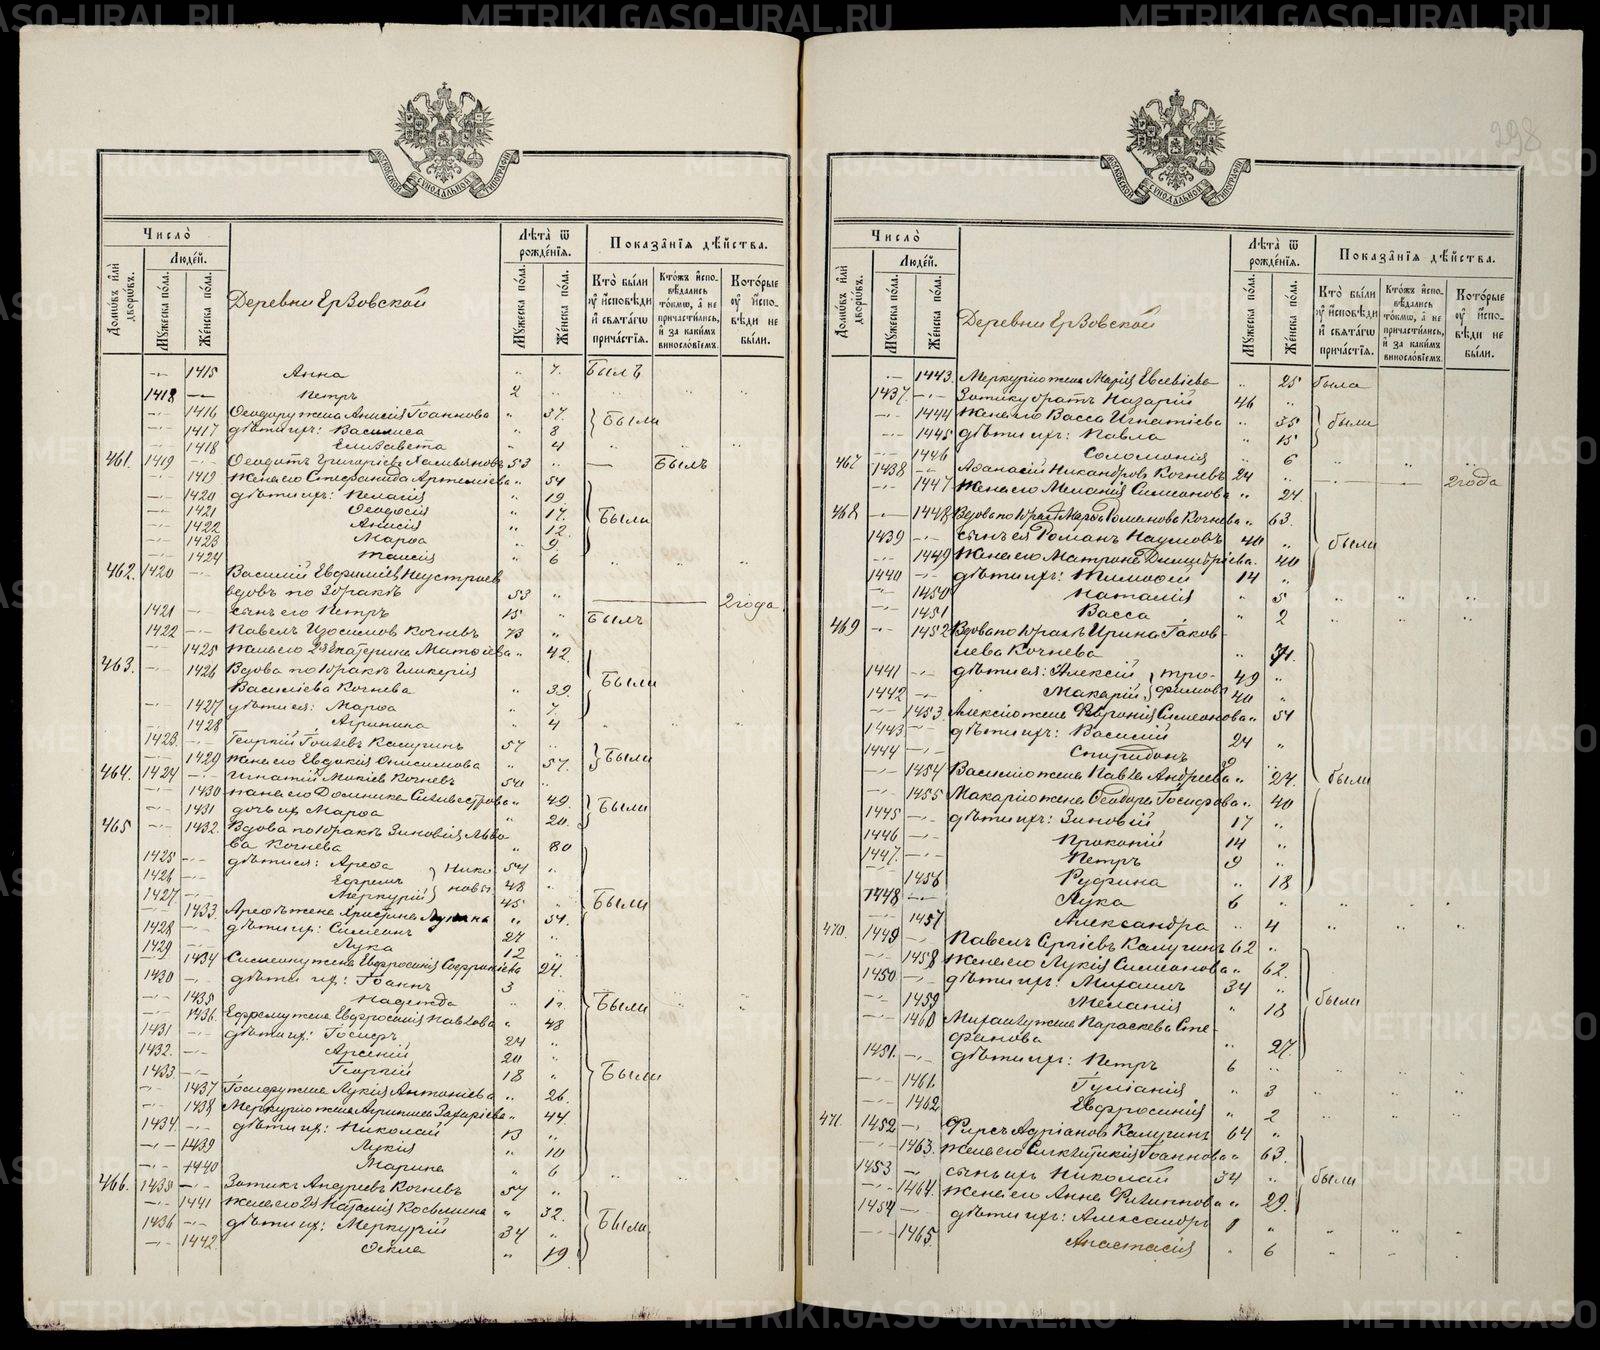 298
МОСКОВСКОЙ СѴНОДАЛЬНОЙ ТИПОГРАФІИ
Число̀
Людей.
Домѡвъ и҆лѝ дворѡвъ.
Мꙋжеска по́ла.
Же́нска по́ла.
Деревни Ерзовской
Лѣта̀ ѿ рожде́нїѧ.
Мꙋжеска по́ла.
Же́нска по́ла.
Показа̑нїѧ дѣ́йства.
Кто̀ бы́ли ᲂу҆ и҆сповѣди и҆ свѧта́гѡ прича́стїѧ.
Кто́жъ и҆спо-вѣдались то́кмѡ, а҆ не причасти́лись, и҆ за каки́мъ винослѡ́вїемъ.
Кото́рые ᲂу҆ и҆спо-вѣди не бы́ли.
1415 Анна " 7. Былъ
1418 Петръ 2
1416 Ѳеодору жена Анисія Іоаннова " 37.
1417 дѣти ихъ: Василиса " 8 Были
1418 Елизавета " 4
461. 1419 Ѳеодотъ Григоріевъ 53 " — Былъ
1419 Жена его Стефанида Артеміева " 54
1420 дѣти ихъ: Пелагія " 19.
1421 Ѳеодосія " 17. Были
1422 Анисія " 12.
1423 Марѳа " 9
1424 Таисія " 6
462. 1420 Василій Евфиміевъ Неустроевъ
вдовъ по 3 бракѣ 53 " 2 года.
1421 сынъ его Петръ 15 " Былъ
1422 Павелъ Изосимовъ Кочневъ 73 "
1425 Жена его 2я Екатерина Матѳіева " 42.
463. 1426 Вдова по 1 бракѣ Гликерія
Василіева Кочнева " 39. Были
1427 дѣти ея: Марѳа " 7.
1428 Агрипина " 4
1423. Георгій Калугинъ 57 "
1429 Жена его Евдокія Онисимова " 57. Были
464. 1424 Игнатій Мокіевъ Кочневъ 50 "
1430 жена его Домника Силивестрова " 49. Были
1431 дочь их Марѳа " 20.
465 1432. Вдова по 1 бракѣ Зиновія Льво
ва Кочнева " 80
1425 дѣти ея: Арефа Нико 54 "
1426 Ефремъ новы 48 "
1427 Меркурій 45 " Были
1433. Арефѣ жена Христина " 54.
1428 дѣти их: Симеонъ 27 "
1429 Лука 12 "
1434 Симеону жена Евфросинія Софроніева 24.
1430 дѣти их: Іоаннъ 3 "
1435 Надежда " 1 Были
1436. Ефрему жена Евфросинія Павлова " 48
1431 дѣти их: Іосифъ 24 "
1432. Арсеній 20 "
1433 Георгій 18 " Были
1437 Іосифу жена Лукія Антоніева " 26.
1438 Меркурію жена Агрипина Захаріева " 44.
1434. дѣти их: Николай 13 "
1439 Лукія " 10
1440 Марина " 6
466. 1435 Зотикъ Андреевъ Кочневъ 57 "
1441 Жена его 2я Наталія Косьмина " 32.
1436 дѣти их: Меркурій 34 " Были
1442 Ѳекла " 19
Число̀
Людей.
Домѡвъ и҆лѝ дворѡвъ.
Мꙋжеска по́ла.
Же́нска по́ла.
Деревни Ерзовской
Лѣта̀ ѿ рожде́нїѧ.
Мꙋжеска по́ла.
Же́нска по́ла.
Показа̑нїѧ дѣ́йства.
Кто̀ бы́ли ᲂу҆ и҆сповѣди и҆ свѧта́гѡ прича́стїѧ.
Кто́жъ и҆спо-вѣдались то́кмѡ, а҆ не причасти́лись, и҆ за каки́мъ винослѡ́вїемъ.
Кото́рые ᲂу҆ и҆спо-вѣди не бы́ли.
1443. Меркурію жена Марія Евсевіева " 25 была
1437. Зотику братъ Назарій 46 "
1444 Жена его Васса Игнатіева " 35 были
1445 дѣти ихъ: Павла " 15
1446 Соломонія " 6
467 1438 Аѳанасій Никандровъ Кочневъ 24 " 2 года
1447 Жена его Меланія Симеонова " 24
468 1448 Вдова по 1 бракѣ Марѳа Романова Кочнева " 63.
1439 сынъ ея Романъ Наумовъ 40 " были
1449 Жена его Матрона Димитріева 40
1440 дѣти ихъ: Тимоѳей 14 "
1450 Наталія " 5
1451 Васса " 2
469 1452 Вдова по 1 бракѣ Ирина Іаков-
лева Кочнева " 71.
1441 дѣти ея: Алексій Тро- 49 "
1442 Макарій фимовы 40 "
1453 Алексію жена Февронія Симеонова " 51
1443 дѣти ихъ: Василій 24 "
1444 Спиридонъ 9
1454 Василію жена Павла Андреева " 27. были
1455 Макарію жена Ѳеодора Іосифова " 40
1445 дѣти ихъ: Зиновій 17 "
1446 Прокопій 14 "
1447. Петръ 9 "
1456 Руфина " 18
1448 Лука 6 "
1457 Александра " 4
470. 1449 Павелъ Сергіевъ Калугинъ 62 "
1458 Жена его Лукія Симеонова " 62.
1450 дѣти ихъ: Михаилъ 34 "
1459 Меланія " 18 были
1460 Михаилу жена Параскева Сте-
фанова " 27.
1451. дѣти ихъ: Петръ 6
1461. Іуліанія " 3
1462 Евфросинія " 2
471. 1452 Фирсъ Адріановъ Калугинъ 64 "
1463. Жена его Синклитикія Іоаннова " 63.
1453 сынъ ихъ Николай 34 " были
1464. Жена его Анна Филиппова " 29.
1454 дѣти ихъ: Александръ 1 "
1465 Анастасія " 6
METRIKI.GASO-URAL.RU